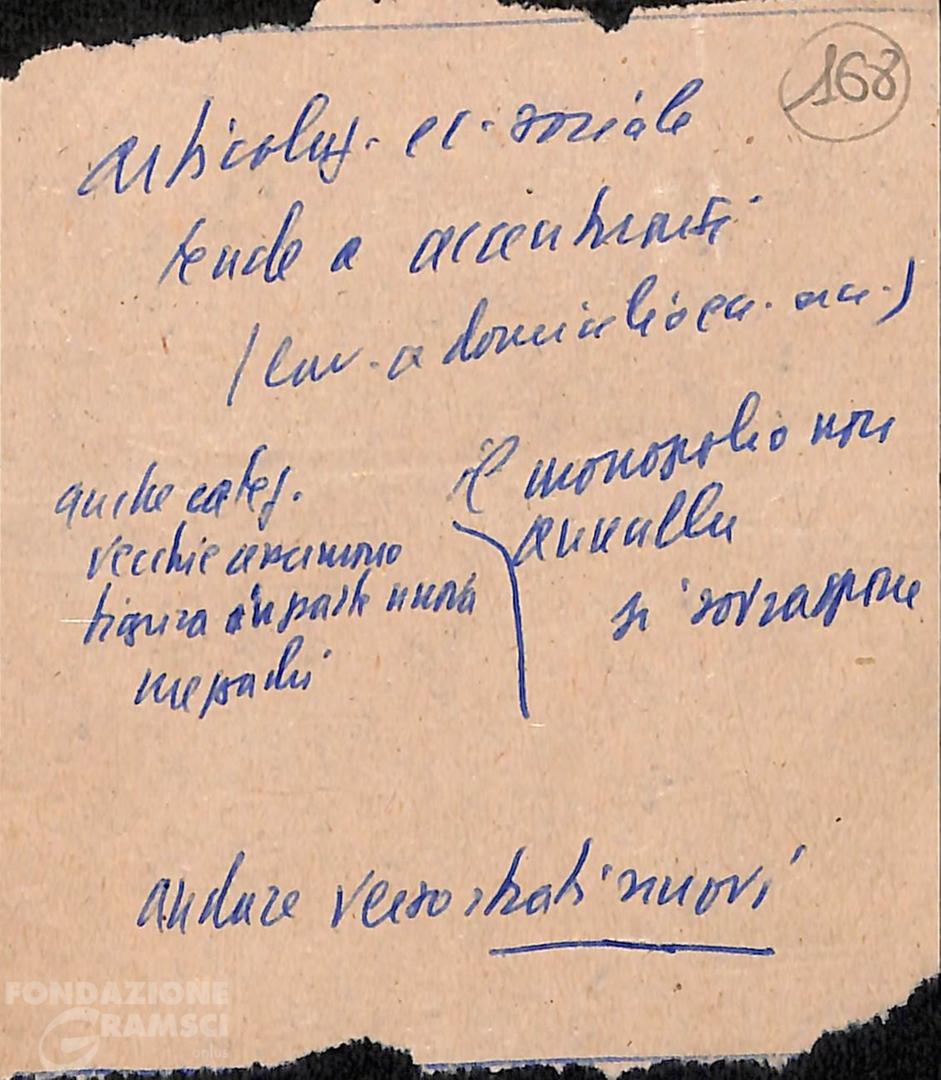 168
articolaz. ec. sociale
tende a accentuarsi
(lav. a domicilio ecc.)
anche categ.
vecchie assumono
figura in parte nuova
mezzadri
il monopolio non
annulla
si sovrappone
andare verso strati nuovi
FONDAZIONE
GRAMSCI
onlus